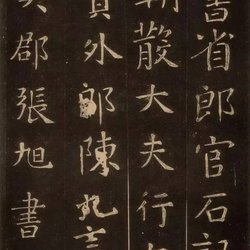 書省郎官石記
朝散大夫行
員外郎陳九言
郡張旭書